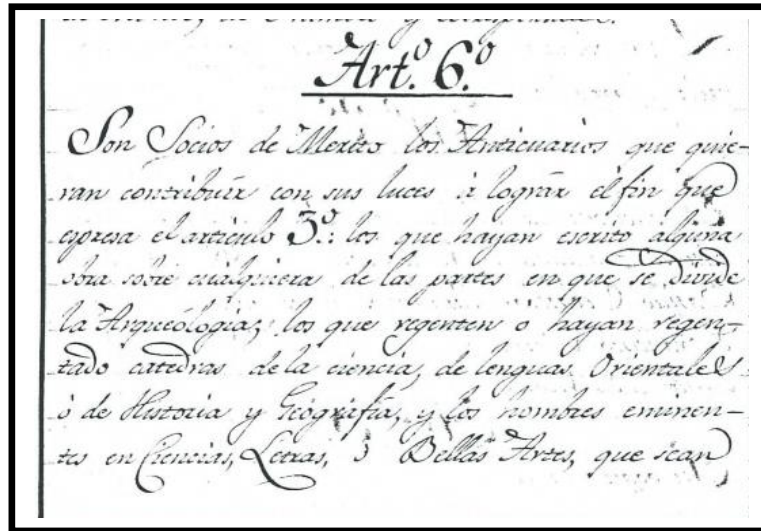 Art.º 6.º
Son Socios de Merito los Anticuarios que quie-
ran contribuir con sus luces á lograr el fin que
espresa el articulo 3º: los que hayan escrito alguna
obra sobre cualquiera de las partes en que se divide
la Arqueólogia; los que regenten o hayan regen-
tado catedras de la ciencia, de lenguas Orientales
ó de Historia y Geografia, y los hombres eminen-
tes en Ciencias, Letras, ó Bellas Artes, que sean